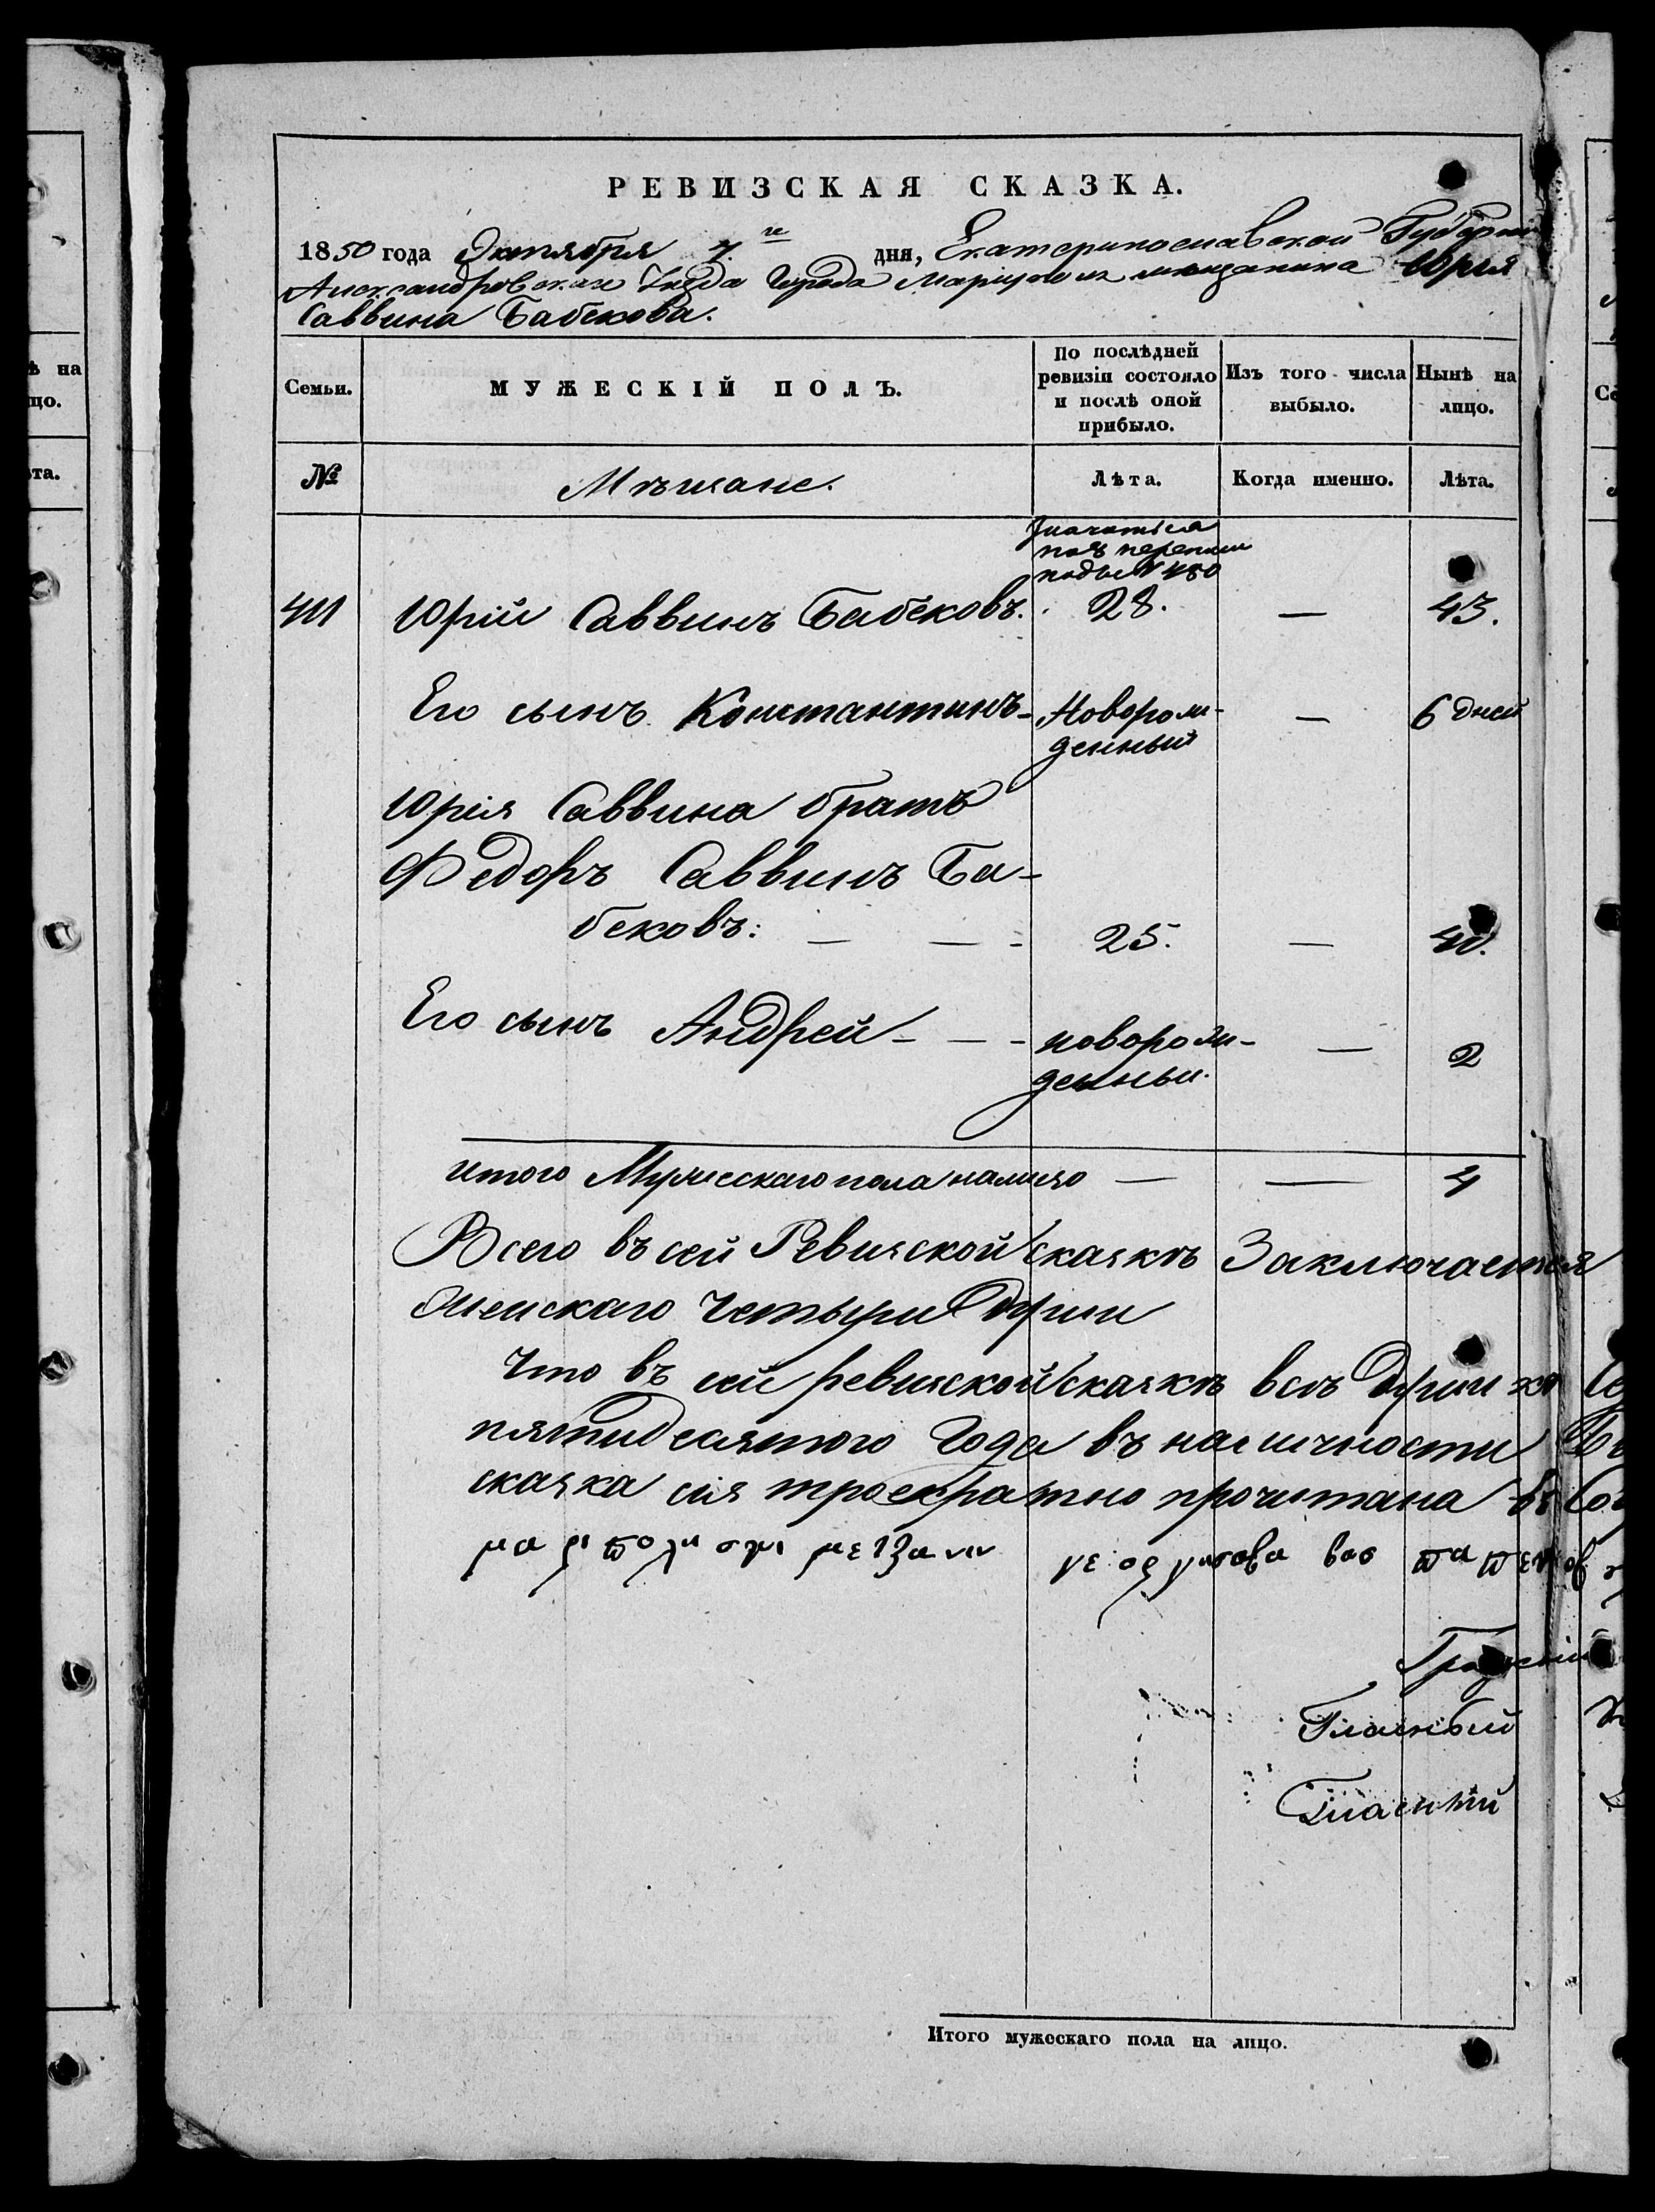 РЕВИЗСКАЯ СКАЗКА.
1850 года Октября 7го дня, Екатеринославской Губерніи
Александровскаго Уѣзда Города Маріуполя мѣщанина Юрія
Саввина Бабекова.
Семьи. МУЖЕСКІЙ ПОЛЪ. По послѣдней ревизіи состояло и послѣ оной прибыло. Изъ того числа выбыло. Нынѣ на лицо.
№ Мѣщане. Лѣта. Когда именно. Лѣта.
Значится
подъ № 480
411 Юрій Саввинъ Бабековъ. 28. — 43.
Его сынъ Константинъ - Новорож- — 6 дней
денный
Юрія Саввина братъ
Федоръ Саввинъ Ба-
бековъ: — — - 25. — 40.
Его сынъ Андрей - — - новорож- — 2
денный.
итого Мужескаго пола налицо — — 4
Всего въ сей Ревизской сказкѣ Заключается
Женскаго Четыри Души
Что въ сей ревизской сказкѣ всѣ Души
пятидесятого Года въ наличности
сказка сія троекратно прочитана въ
Градскій
Гласный
Гласный
Итого мужескаго пола на лицо.
ѣ на
цо.
ѣта.